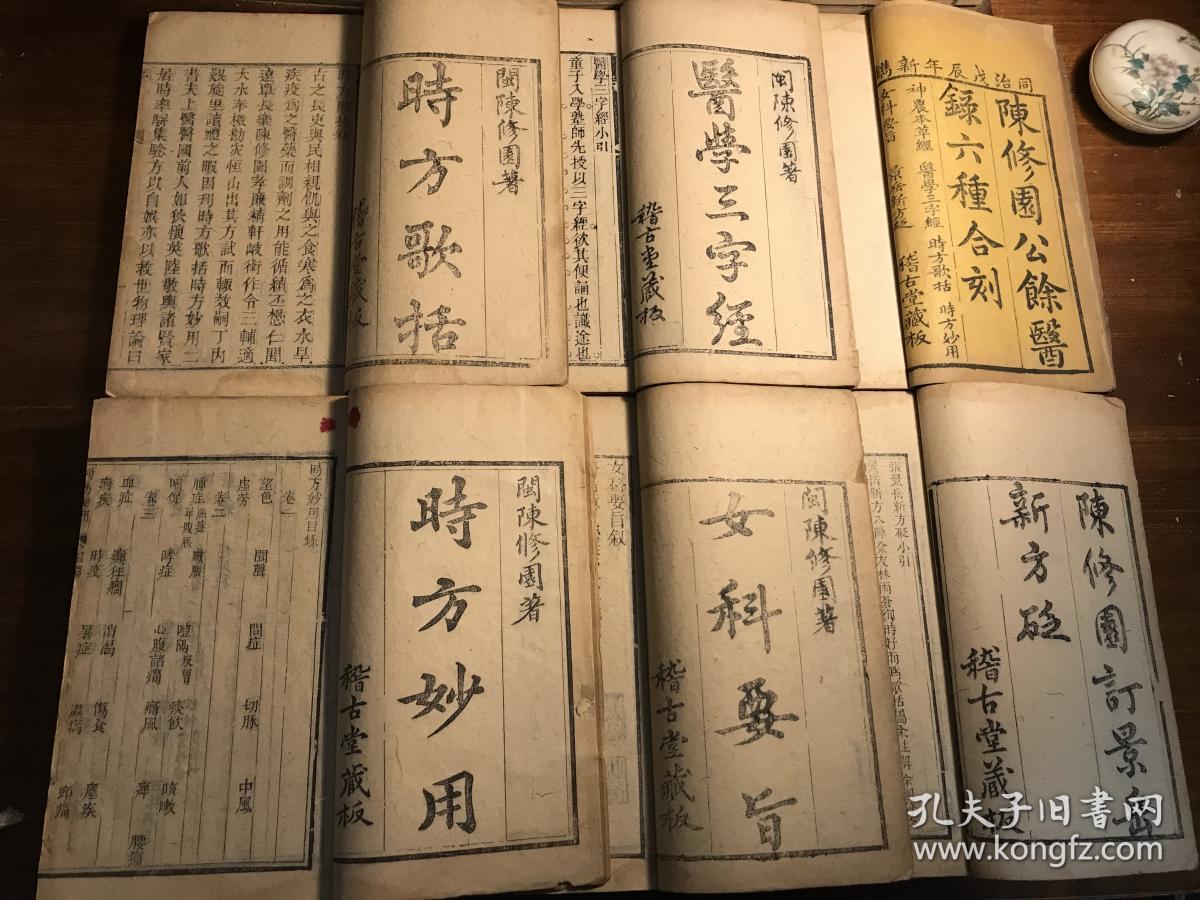 同治戊辰年新鐫
陳修園公餘醫
錄六種合刻
神農本草經 醫學三字經 時方歌括 時方妙用
稽古堂藏板
閩陳修園著
醫學三字經
稽古堂藏板
醫學三字經小引
童子入學塾師先授以三字經欲其便誦也識途也
閩陳修園著
時方歌括
稽古堂藏板
古之長吏與民相親飢與之食寒為之衣水旱
疾疫為之醫藥而調劑之用能循績丕懋仁聞
遠章長樂陳修園孝廉精軒岐術作令三輔適
大水奉檄勘灾恒山出其方試而輒效嗣丁內
艱旋里讀禮之暇因刊時方歌括時方妙用二
書夫上醫醫國前人如狄懷英陸敬輿諸賢家
居時率騈集驗方以自娛亦以救世物理論曰
陳修園訂景岳
新方砭
稽古堂藏板
張景岳新方砭小引
閩陳修園著
女科要旨
稽古堂藏板
女科要旨叙
閩陳修園著
時方妙用
稽古堂藏板
時方妙用目錄
卷一
望色 聞聲 問症 切脉 中風
虛勞
卷二
哮症 噎隔反胃 痰飲 咳嗽
心腹諸痛 痛風 痺 腰痛
卷三
血症 癲狂癎 消渴 傷食 瘧疾
痢疾 時疫 暑症
孔夫子旧书网
www.kongfz.com